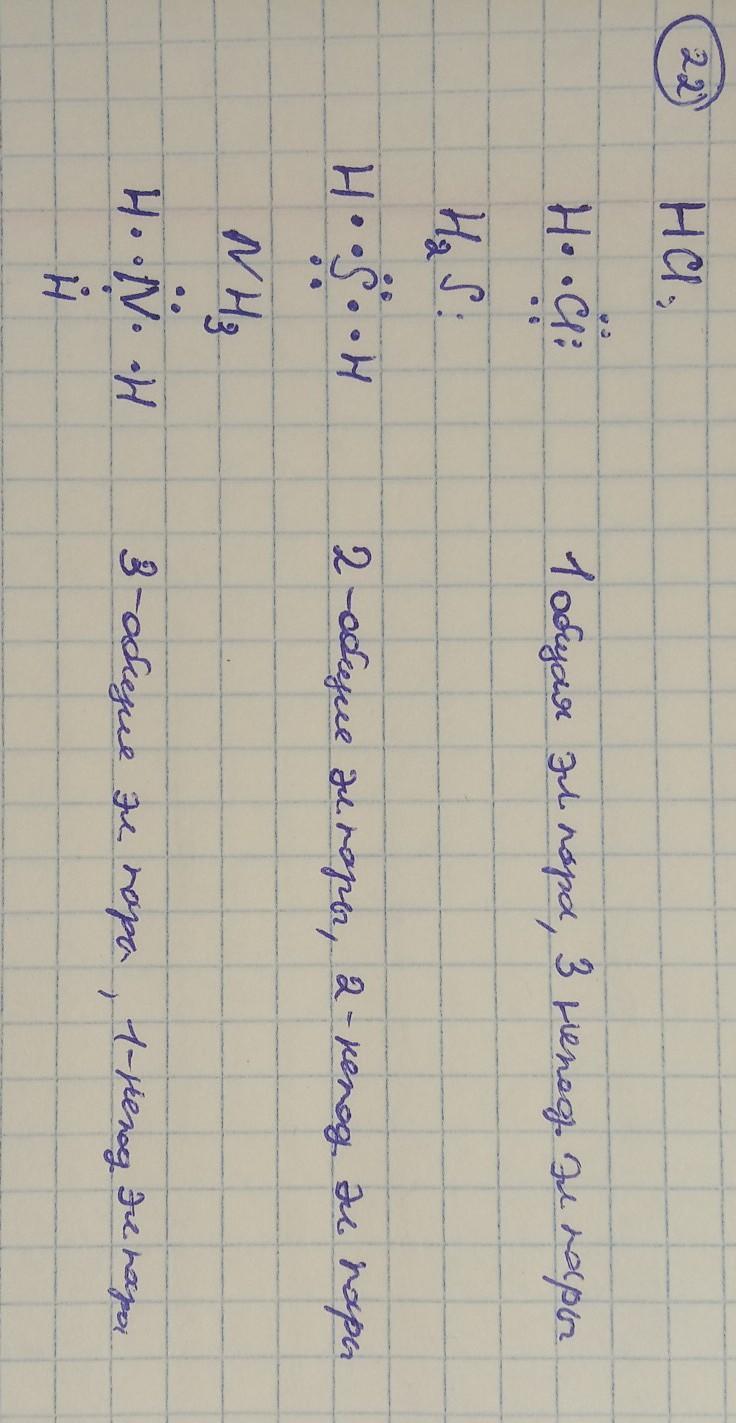 22 HCl:
H· ·Cl: 1 общая эл пара, 3 непод. эл. пары
H₂S:
H· ·S· ·H 2-общие эл. пары, 2-непод эл пары
NH₃
H· ·N· ·H 3-общие эл. пары, 1-непод эл. пары
H